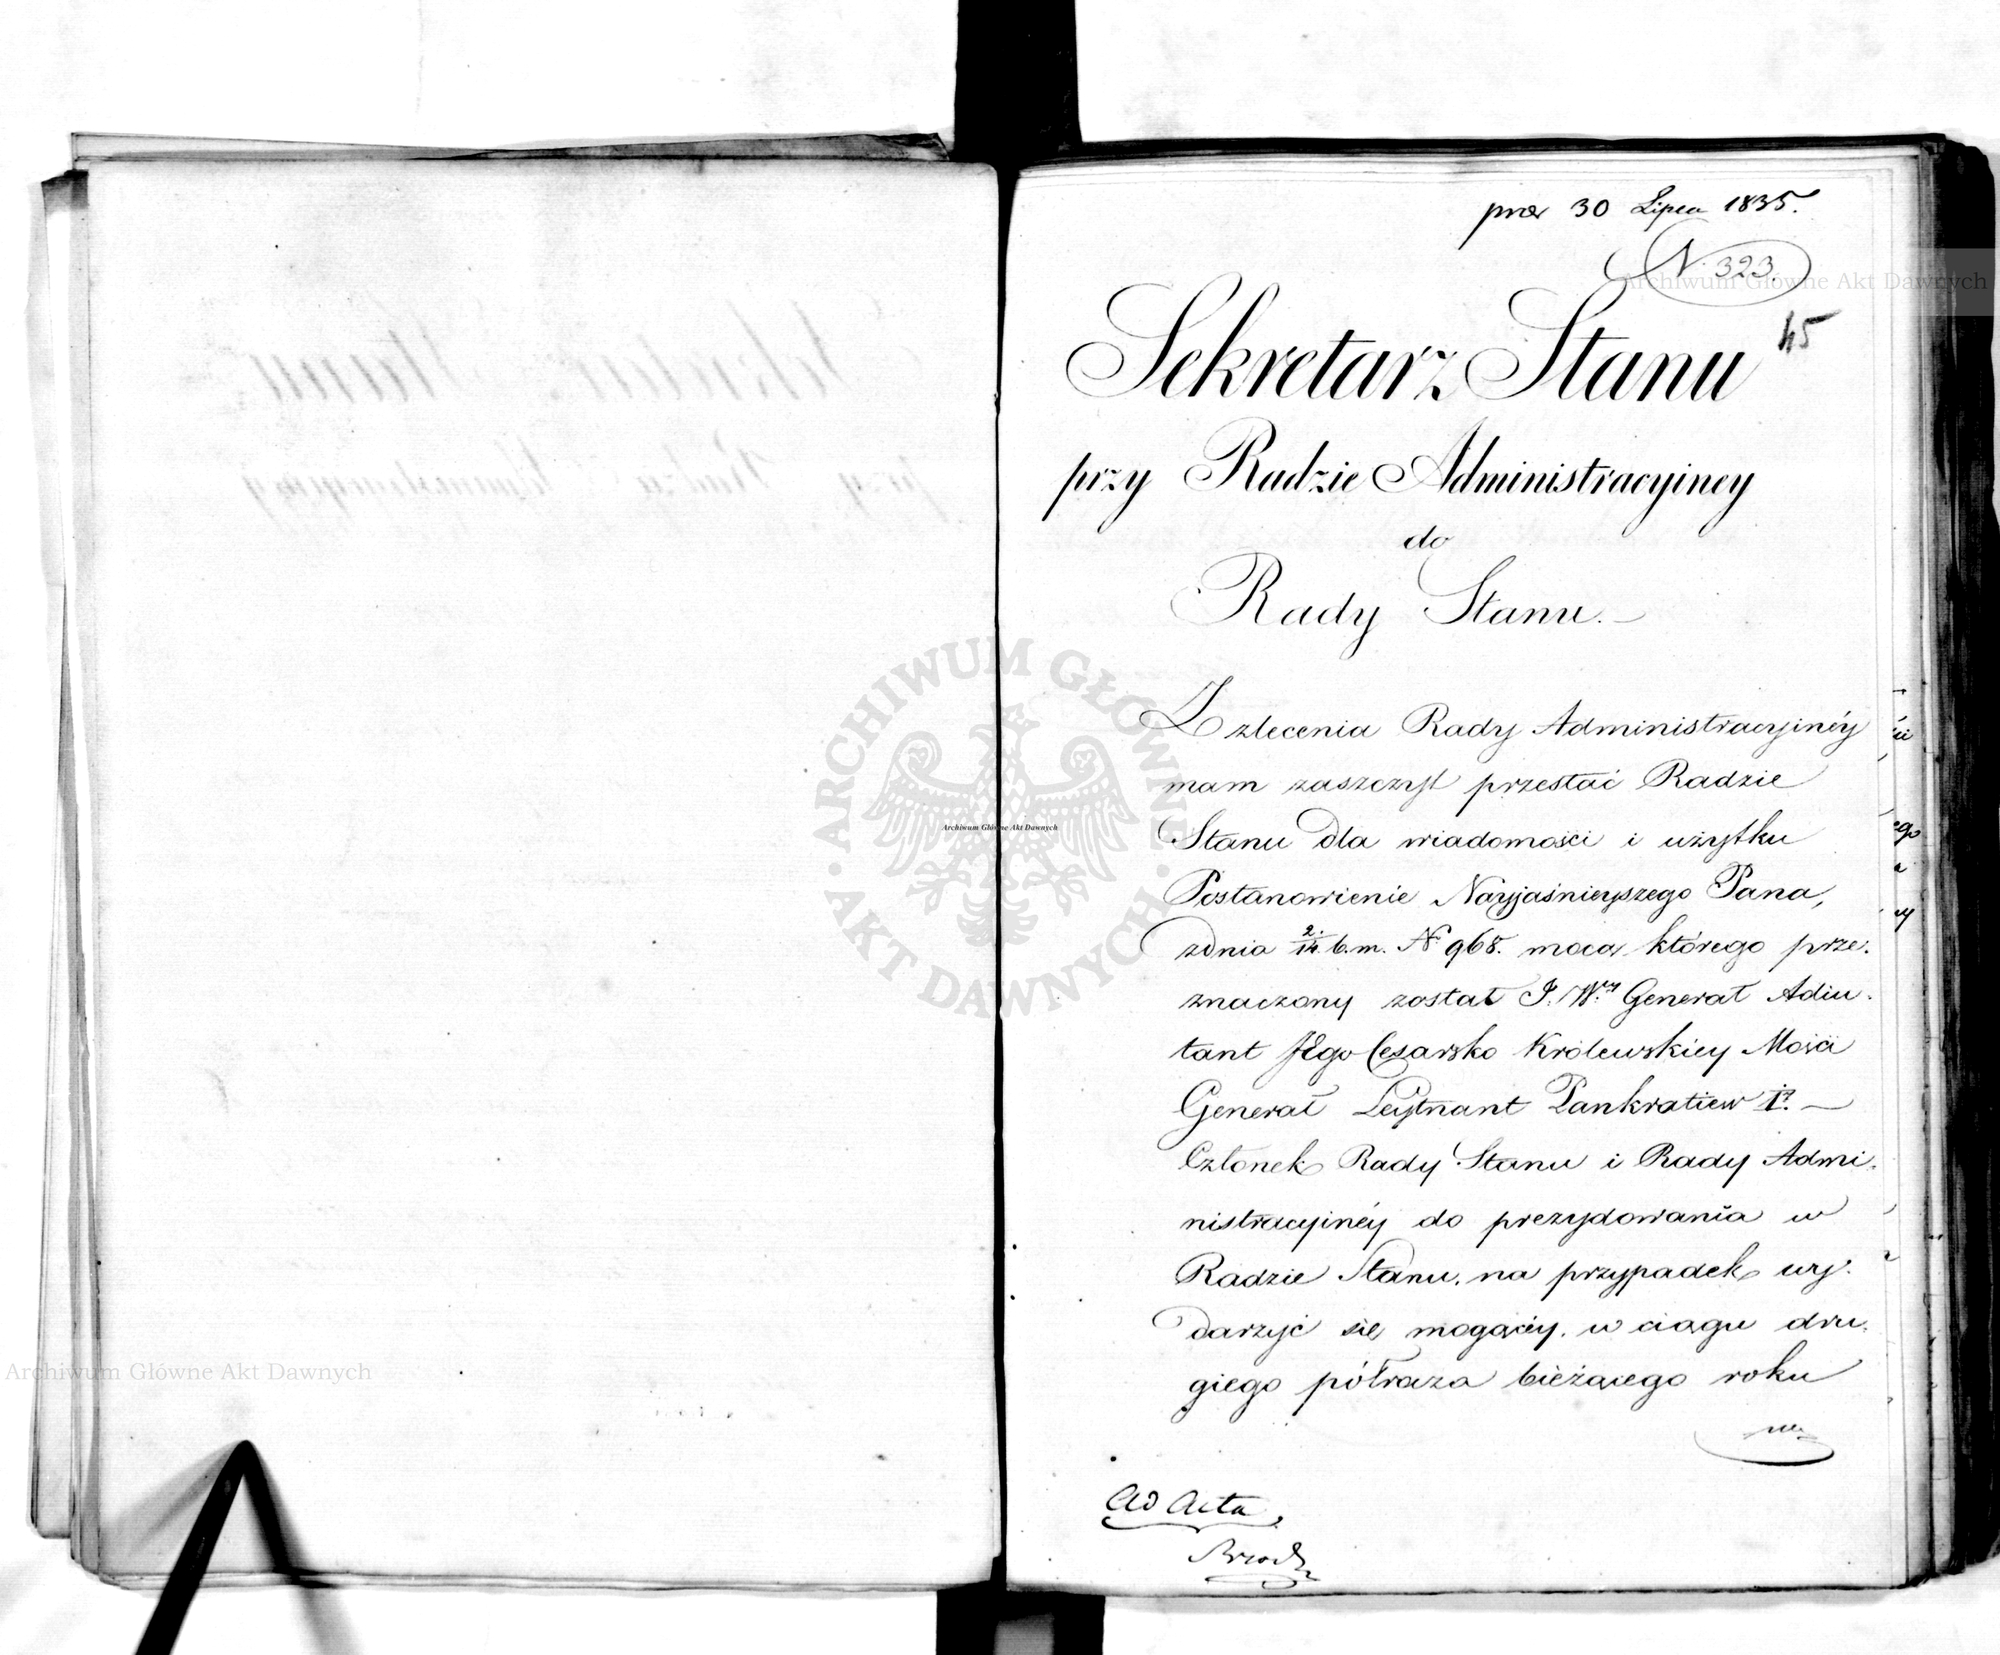 prae 30 Lipca 1835.
N. 323.
45
Sekretarz Stanu
przy Radzie Administracyiney
do
Rady Stanu.—
Z zlecenia Rady Administracyinéy
mam zaszczyt przesłać Radzie
Stanu dla wiadomości i użytku
Postanowienie Nayjaśnieyszego Pana,
zdnia 2./14. b.m. No 968. mocą którego prze-
znaczony został J. Wny Generał Adiu-
tant JEgo Cesarsko Królewskiey Mości
Generał Leytnant Pankratiew Iy. —
Członek Rady Stanu i Rady Admi-
nistracyinéy do prezydowania w
Radzie Stanu, na przypadek wy-
darzyć się mogącéy, w ciągu dru-
giego półraza bieżącego roku
Ad Acta
ARCHIWUM GŁÓWNE AKT DAWNYCH
Archiwum Główne Akt Dawnych
Archiwum Główne Akt Dawnych
Archiwum Główne Akt Dawnych